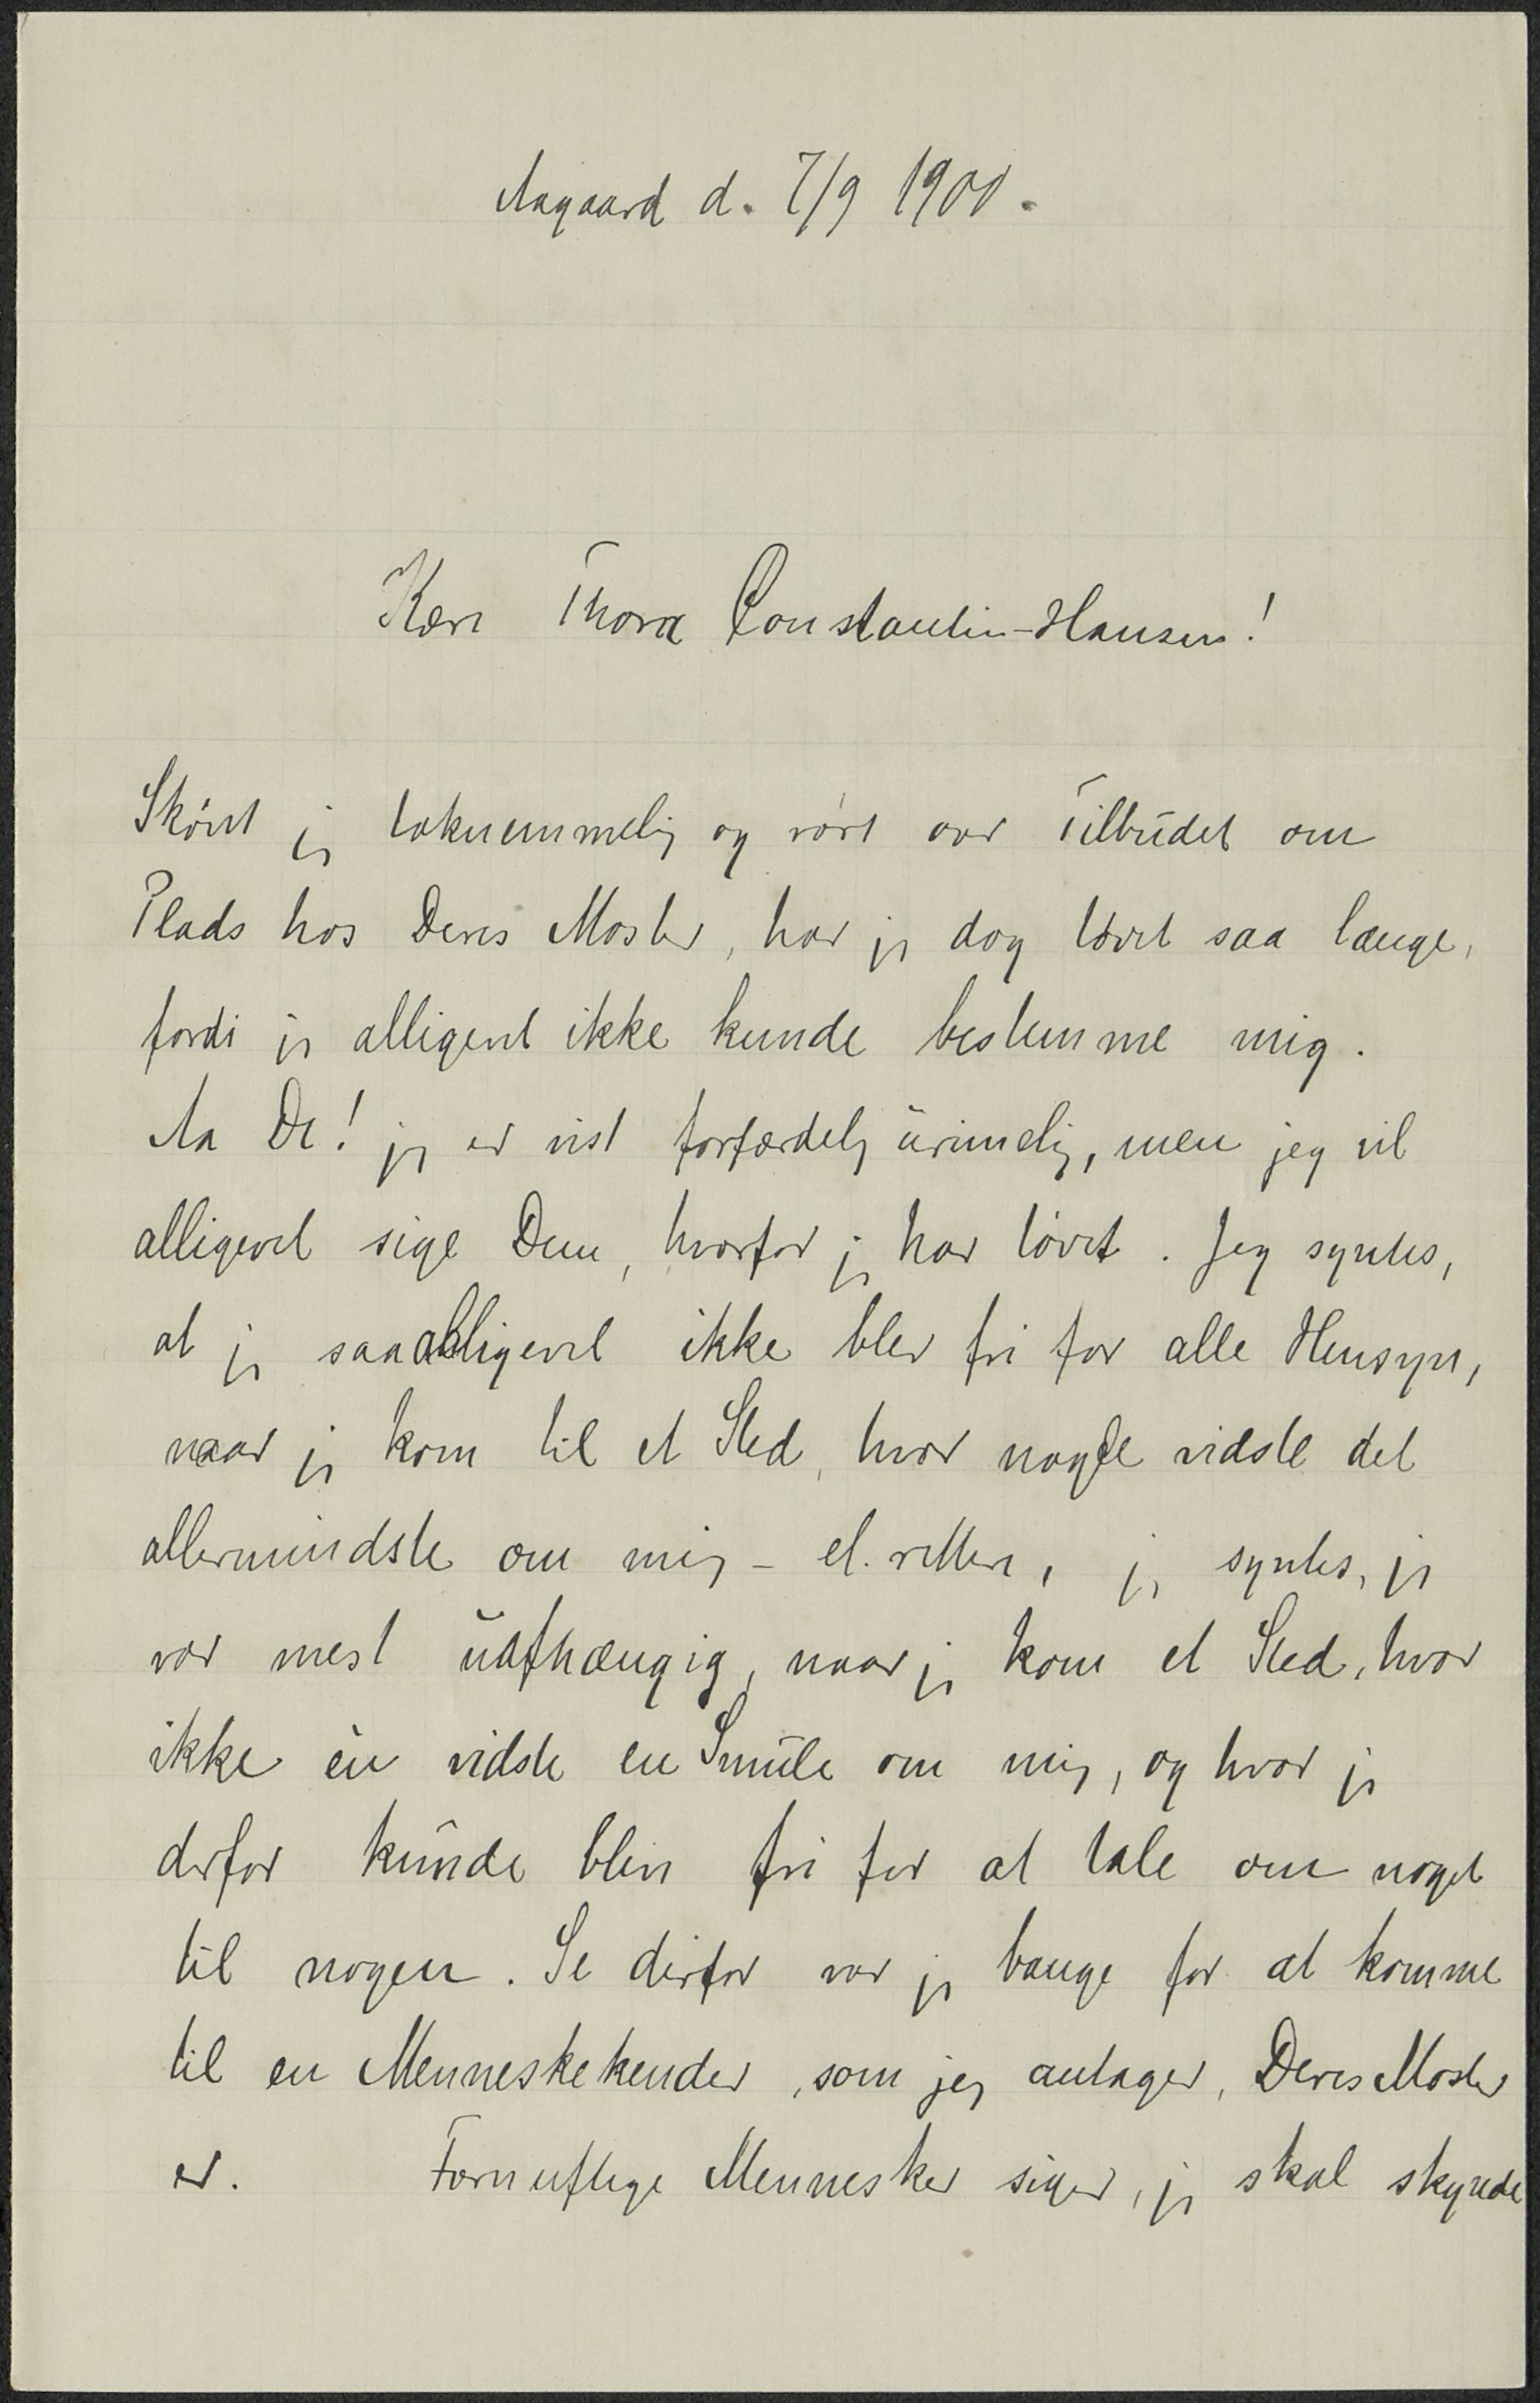 Aagaard d. 7/9 1900.
Kære Thora Constantin-Hansen!
Skönt jeg taknemmelig og rört over Tilbudet om
Plads hos Deres Moster, har jeg dog tövet saa længe,
fordi jeg alligevel ikke kunde bestemme mig.
Aa De! jeg er vist forfærdelig urimelig, men jeg vil
alligevel sige Dem, hvorfor jeg har tövet. Jeg syntes,
at jeg saa alligevel ikke blev fri for alle Hensyn,
naar jeg kom til et Sted, hvor nogle vidste det
allermindste om mig - el. rettere, jeg syntes, jeg
var mest uafhængig, naar jeg kom et Sted, hvor
ikke én vidste en Smule om mig, og hvor jeg
derfor kunde blive fri for at tale om noget
til nogen. Se derfor var jeg bange for at komme
til en Menneskekender, som jeg antager, Deres Moster
er. Fornuftige Mennesker siger, jeg skal skynde